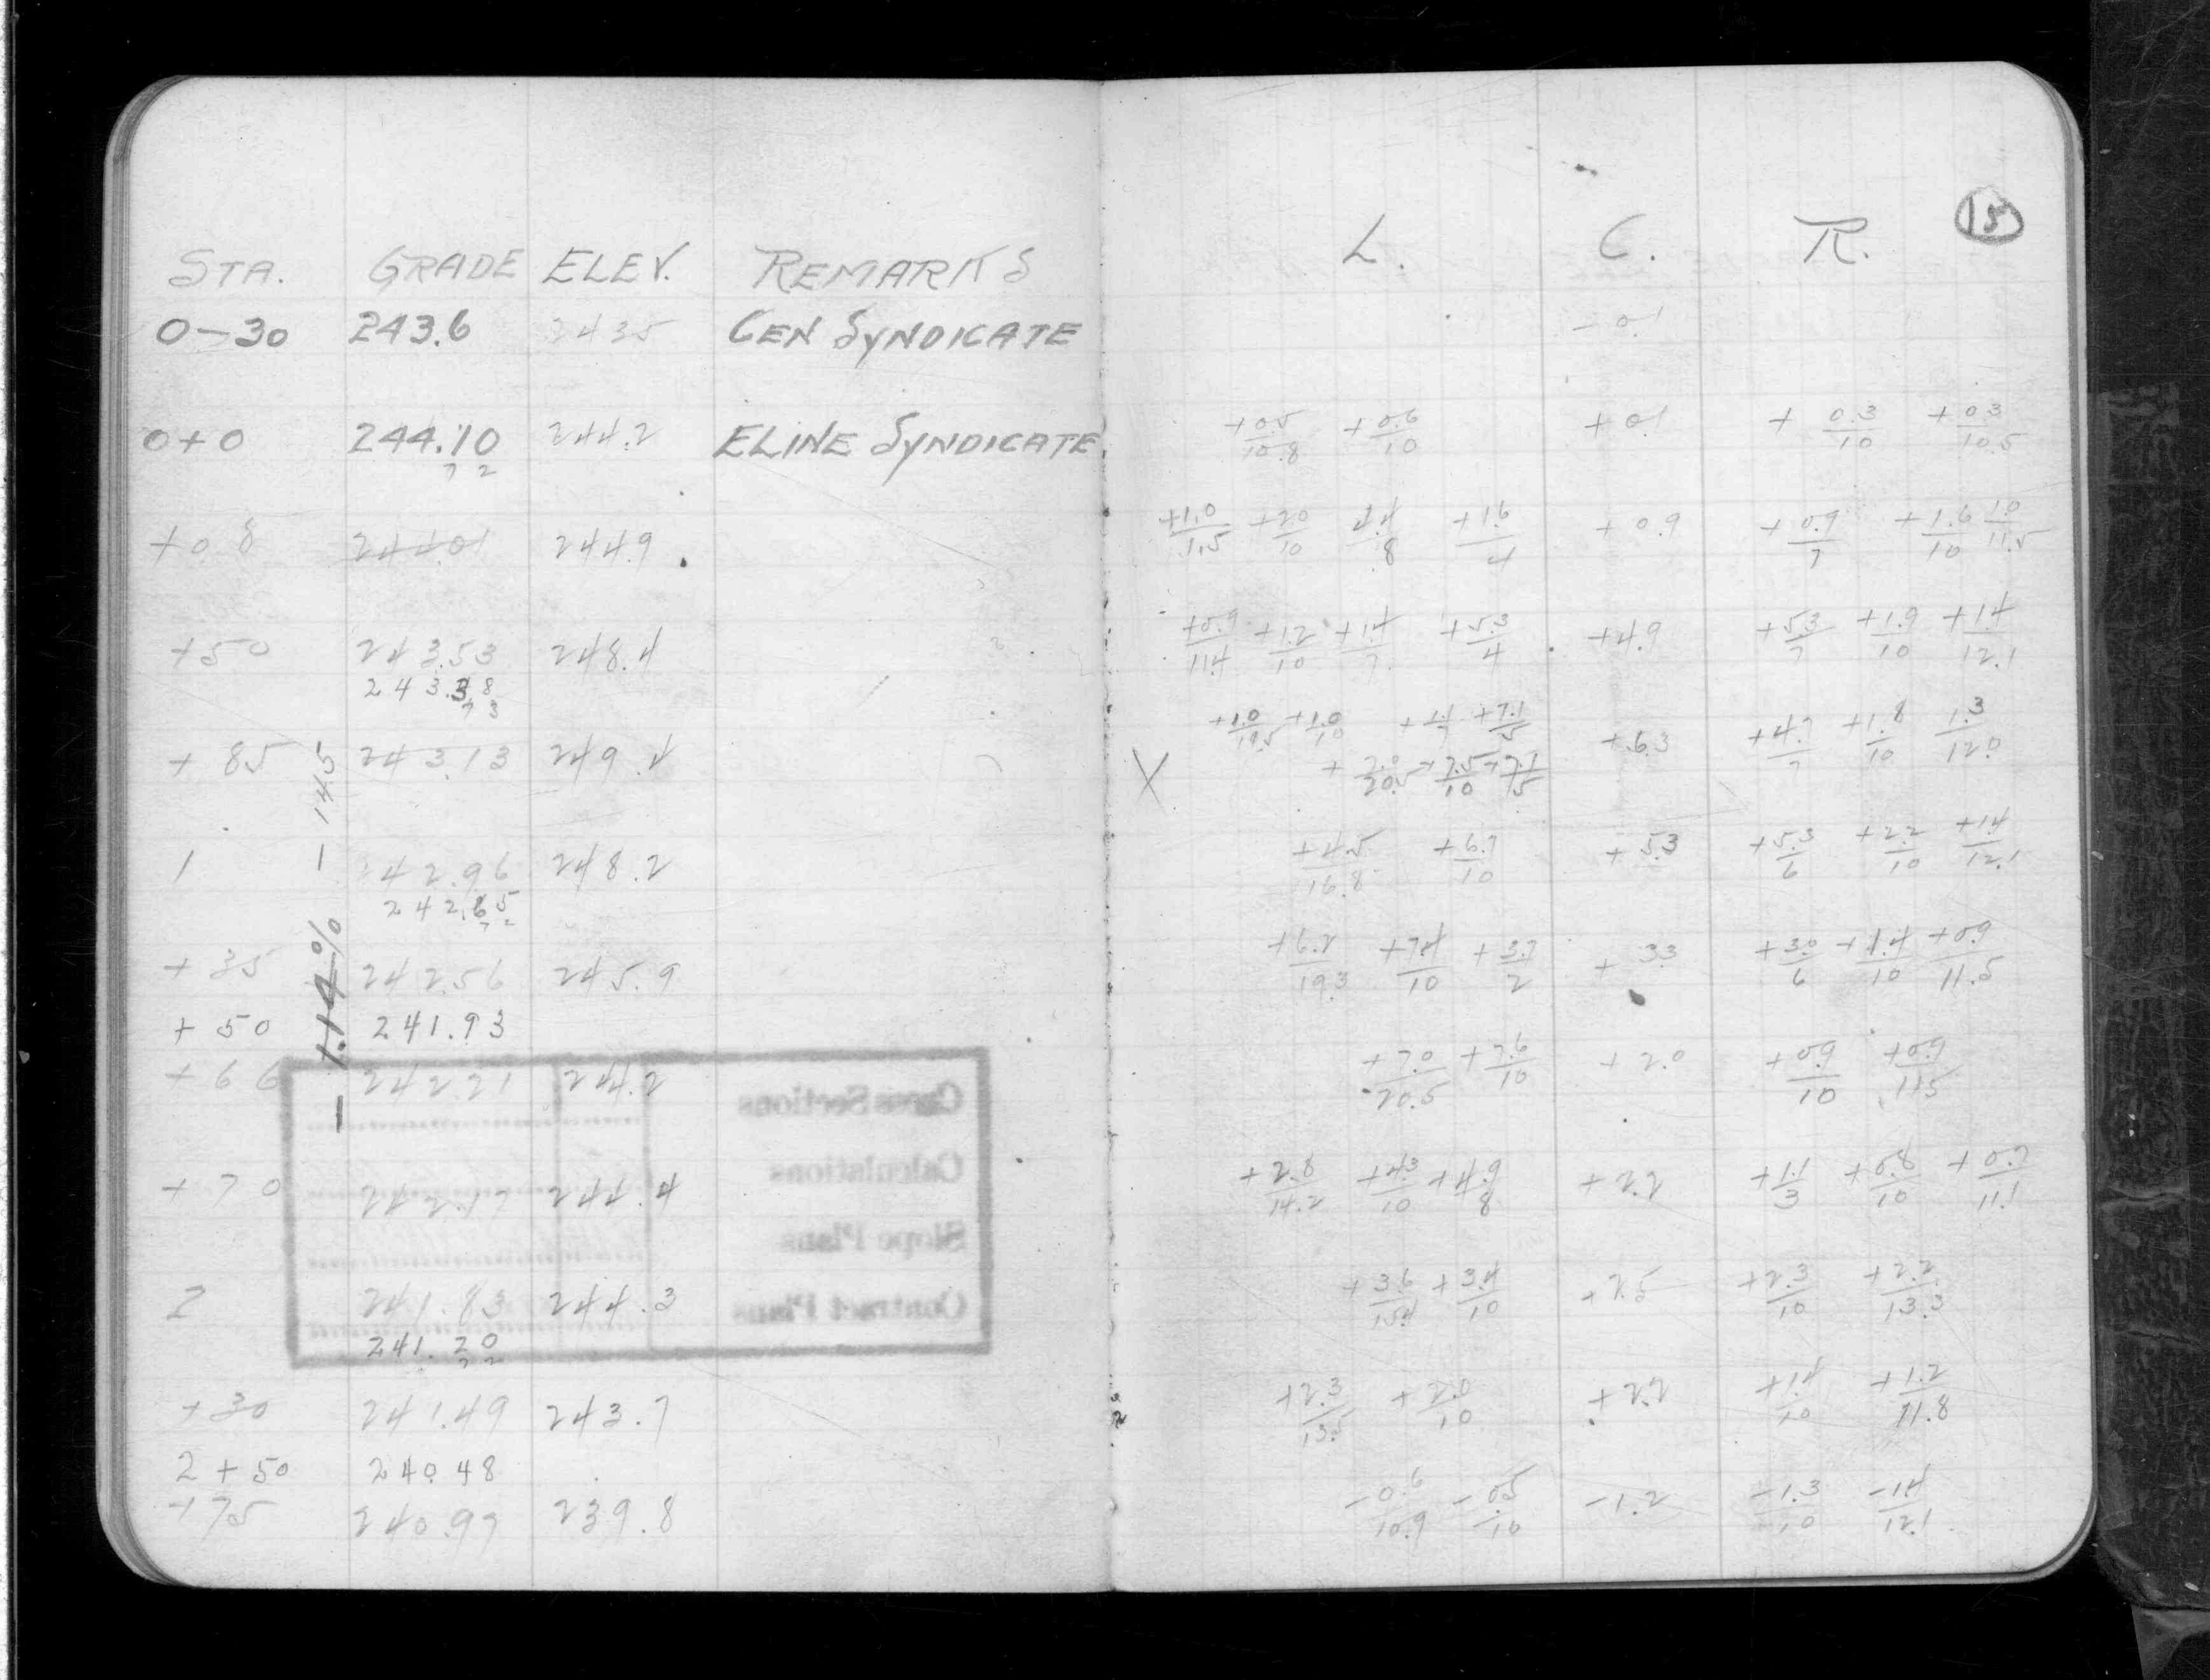 15
STA. GRADE ELEV. REMARKS L. C. R.
0-30 243.6 243.5 CEN SYNDICATE -0.1
0+0 244.10 244.2 ELINE SYNDICATE. +0.5/10.8 +0.6/10 +0.1 +0.3/10 +0.3/10.5
7 2
+08 244.01 244.9 +1.0/11.5 +2.0/10 +1.6/4 +0.9 +0.9/7 +1.6/10 1.0/11.5
+50 243.53 248.4 +0.9/11.4 +1.2/10 +1.4/7 +5.3/4 +4.9 +5.3/7 +1.9/10 +1.4/12.1
243.38
7 3
+85 243.13 249.4 +1.0/19.5 +1.0/10 +7.1/5 +6.3 +4.7/7 +1.8/10 1.3/12.0
X +7.0/20.5 +7.5/10 +7.1/5
1 242.96 248.2 +4.5/16.8 +6.7/10 +5.3 +5.3/6 +2.2/10 +1.4/12.1
242.65
- 1.14% - 145
+35 242.56 245.9 +6.2/19.3 +7.4/10 +3.7/2 +3.3 +3.0/6 +1.4/10 +0.9/11.5
+50 241.93
+66 242.21 244.2 +7.0/20.5 +7.6/10 +2.0 +0.9/10 +0.9/11.5
Cross Sections
Calculations
+70 242.17 244.4 +2.8/14.2 +4.3/10 +4.9/8 +2.2 +1.1/3 +0.8/10 +0.7/11.1
Slope Plans
2 241.83 244.3 +3.6/15.4 +3.4/10 +2.5 +2.3/10 +2.2/13.3
Contract Plans
241.20
+30 241.49 243.7 +2.3/13.5 +2.0/10 +2.2 +1.4/10 +1.2/11.8
2+50 240.48
+75 240.97 239.8 -0.6/10.9 -0.5/10 -1.2 -1.3/10 -1.4/12.1